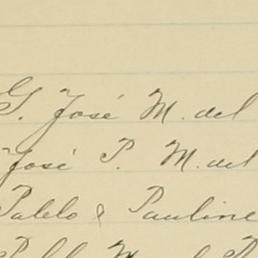 G. José M. del
José P. M. del
Pablo & Pauline